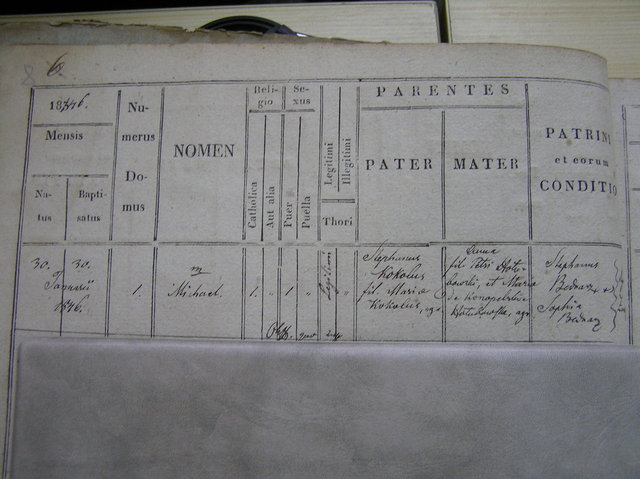 6.
1846.
Mensis
Na-
tus
Bapti-
satus
Nu-
merus
Do-
mus
NOMEN
Reli-
gio
Catholica
Aut alia
Se-
xus
Puer
Puella
Legitimi
Illegitimi
Thori
PARENTES
PATER
MATER
PATRINI
et eorum
CONDITIO
30. 30.
Januarii
1846.
1.
m
Michael.
1. " 1 " Legitimi "
Stephanus
Kokolus
fil. Maria
Kokolus,
Anna
fil. Petri
et Maria
de
Stephanus
Bednarz et
Sophia
Bednarz